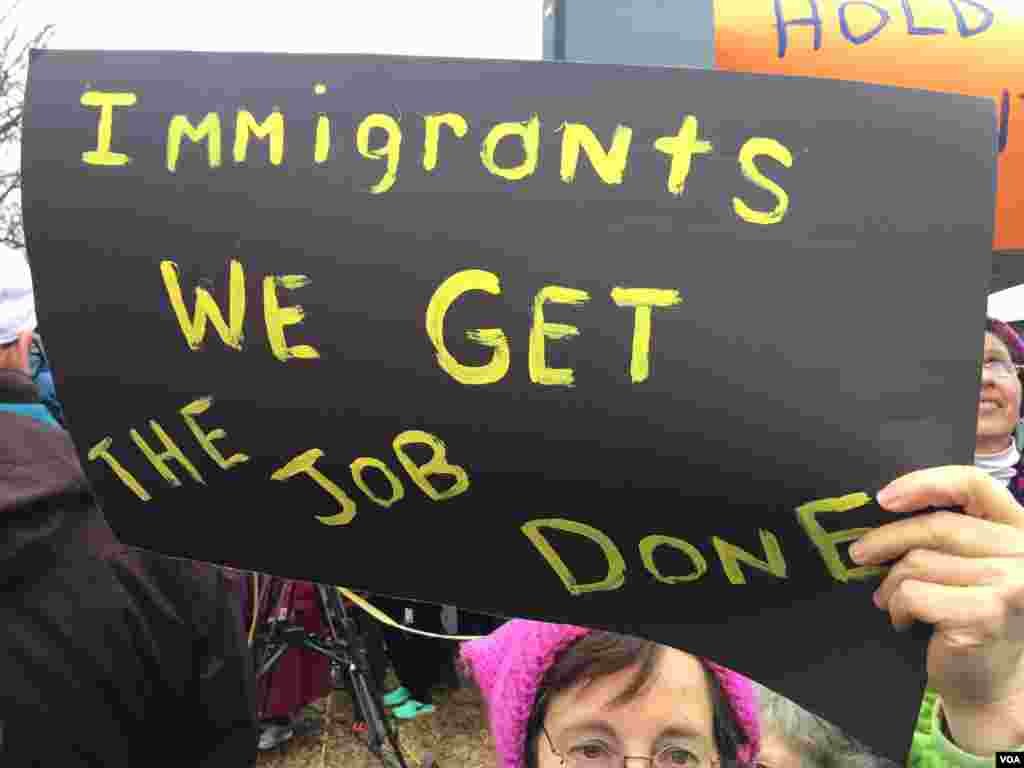 HOLD
Immigrants
WE GET
THE JOB
DONE
VOA